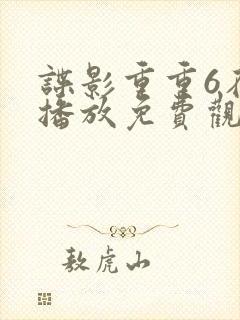 諜影重重6在
播放免費觀
敖虎山